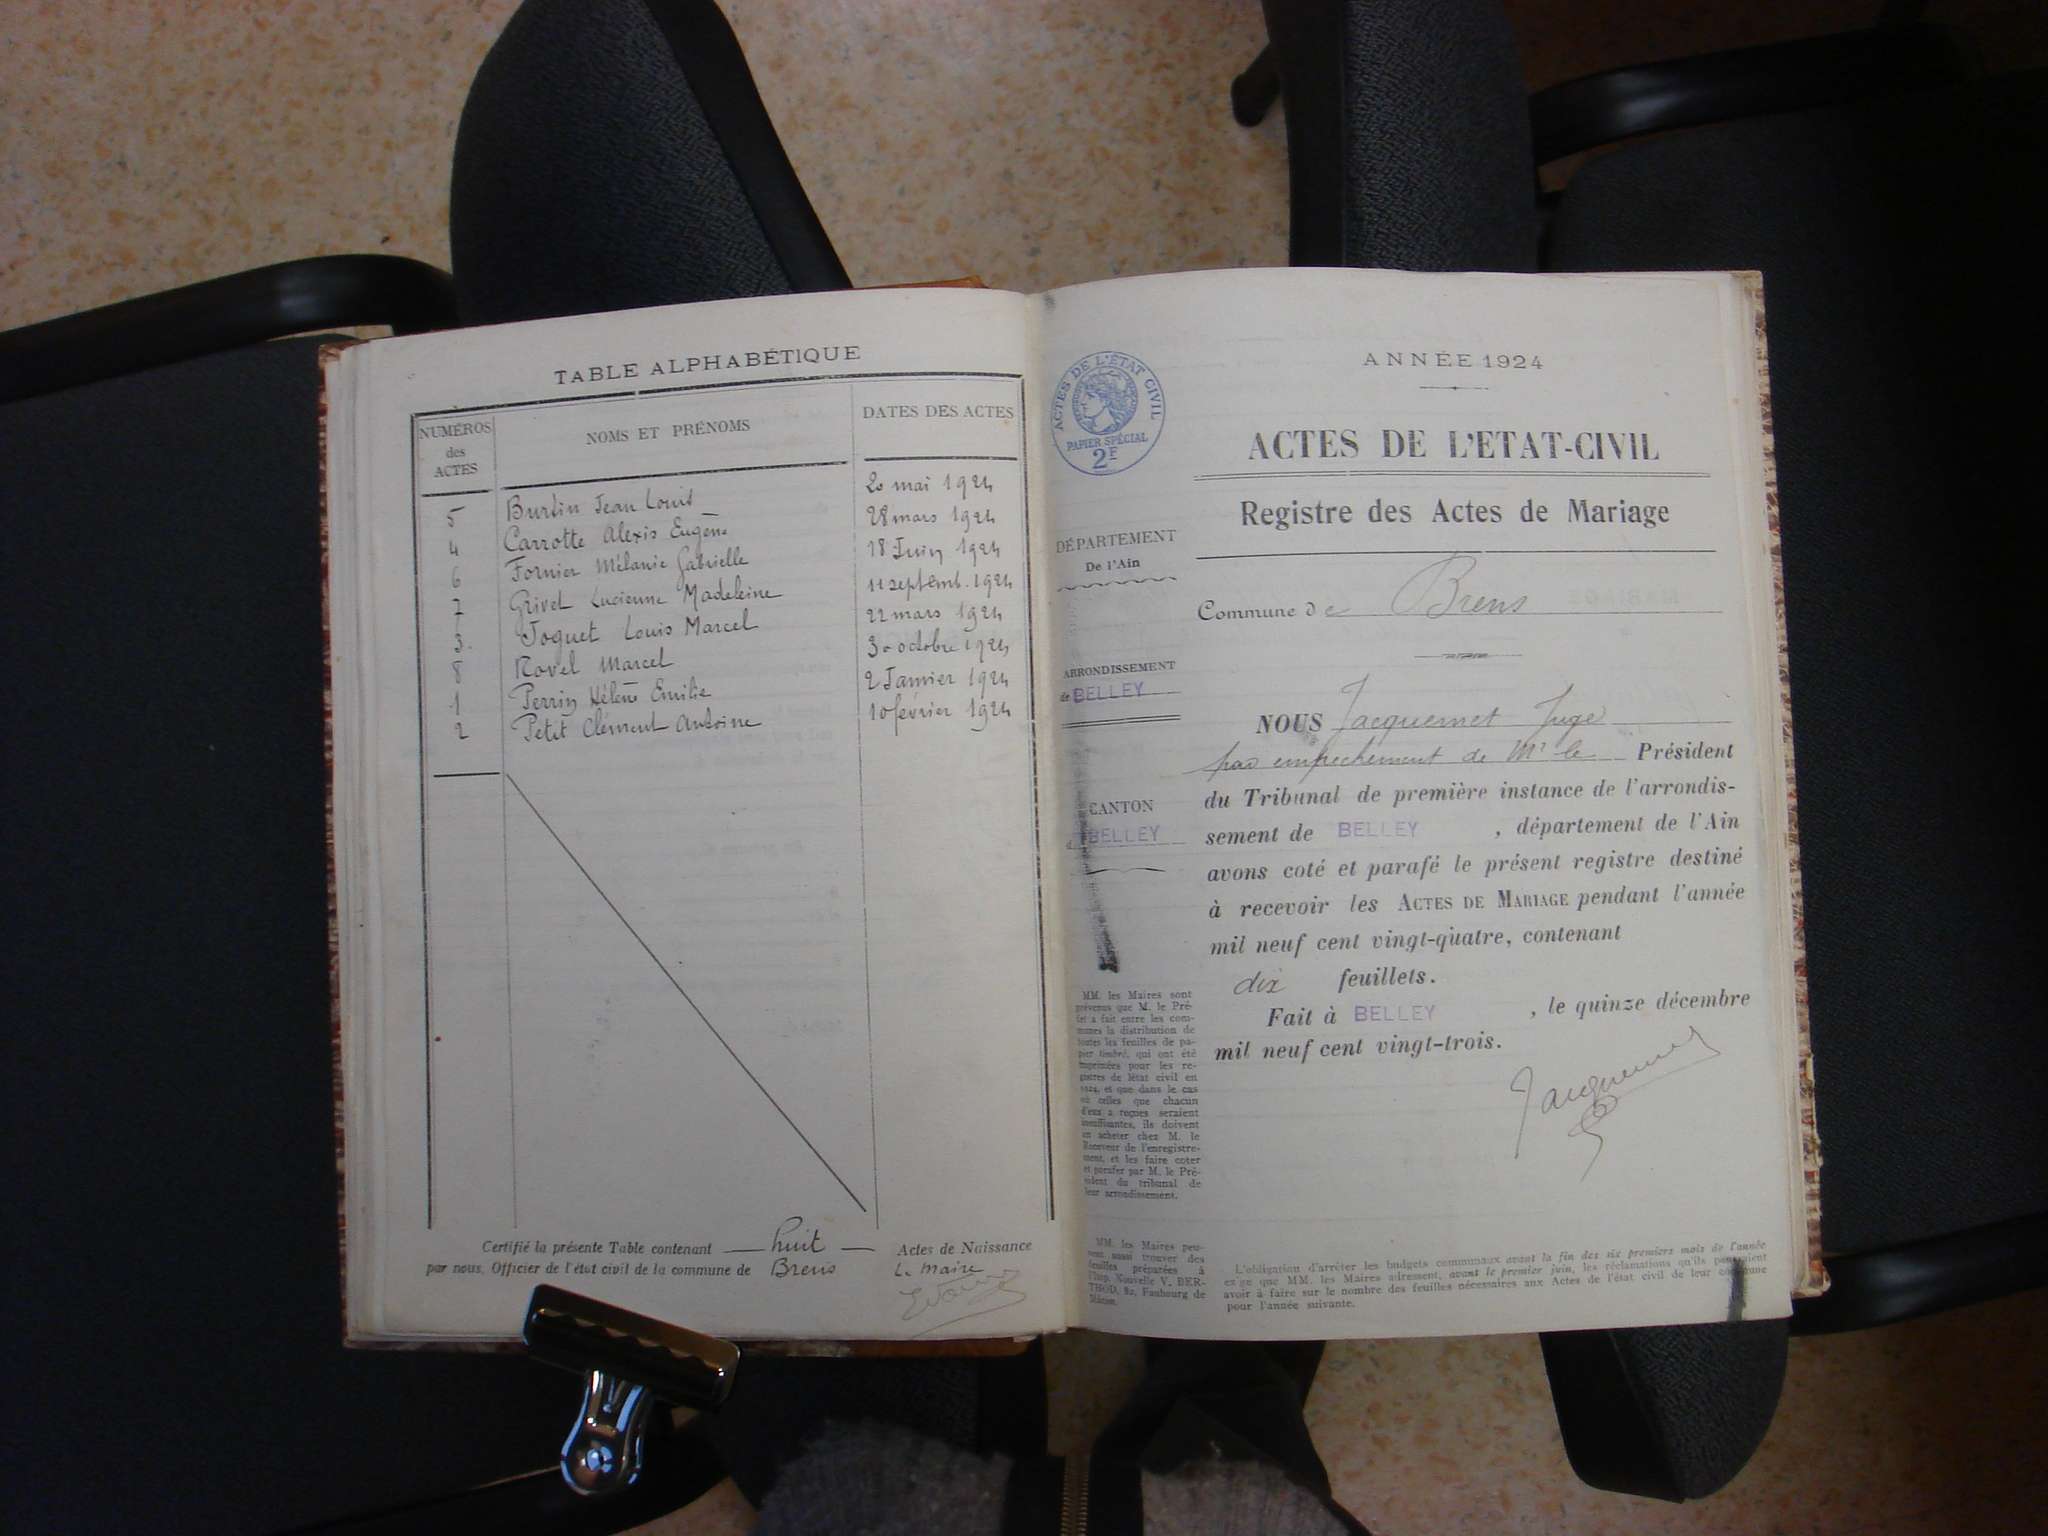 TABLE ALPHABÉTIQUE
NUMÉROS des ACTES
NOMS ET PRÉNOMS
DATES DES ACTES
5 Burtin Jean Louis 20 mai 1924
4 Carrotte Alexis Eugène 28 mars 1924
6 Fornier Mélanie Gabrielle 18 Juin 1924
7 Grivel Lucienne Madeleine 11 septemb. 1924
3 Joguet Louis Marcel 22 mars 1924
8 Novel Marcel 30 octobre 1924
1 Perrin Hélène Emilie 2 Janvier 1924
2 Petit Clément Antoine 10 février 1924
Certifié la présente Table contenant huit Actes de Naissance
par nous, Officier de l'état civil de la commune de Brens Le Maire
ACTES DE L'ÉTAT CIVIL
PAPIER SPÉCIAL
2F
DÉPARTEMENT
De l'Ain
ARRONDISSEMENT
de BELLEY
CANTON
d BELLEY
MM. les Maires sont
prévenus que M. le Pré-
fet a fait entre les com-
munes la distribution de
toutes les feuilles de pa-
pier timbré, qui ont été
imprimées pour les re-
gistres de l'état civil en
1924, et que dans le cas
où celles que chacun
d'eux a reçues seraient
insuffisantes, ils doivent
en acheter chez M. le
Receveur de l'enregistre-
ment, et les faire coter
et parafer par M. le Pré-
sident du tribunal de
leur arrondissement.
MM. les Maires peu-
vent aussi trouver des
feuilles préparées à
l'Imp. Nouvelle V. BER-
THOD, 82, Faubourg de
Mâcon.
ANNÉE 1924
ACTES DE L'ETAT-CIVIL
Registre des Actes de Mariage
Commune de Brens
NOUS Jacquemet Juge
par empechement de Mr le Président
du Tribunal de première instance de l'arrondis-
sement de BELLEY , département de l'Ain
avons coté et parafé le présent registre destiné
à recevoir les ACTES DE MARIAGE pendant l'année
mil neuf cent vingt-quatre, contenant
dix feuillets.
Fait à BELLEY , le quinze décembre
mil neuf cent vingt-trois.
Jacquemet
L'obligation d'arrêter les budgets communaux avant la fin des six premiers mois de l'année
exige que MM. les Maires adressent, avant le premier juin, les réclamations qu'ils pourraient
avoir à faire sur le nombre des feuilles nécessaires aux Actes de l'état civil de leur commune
pour l'année suivante.